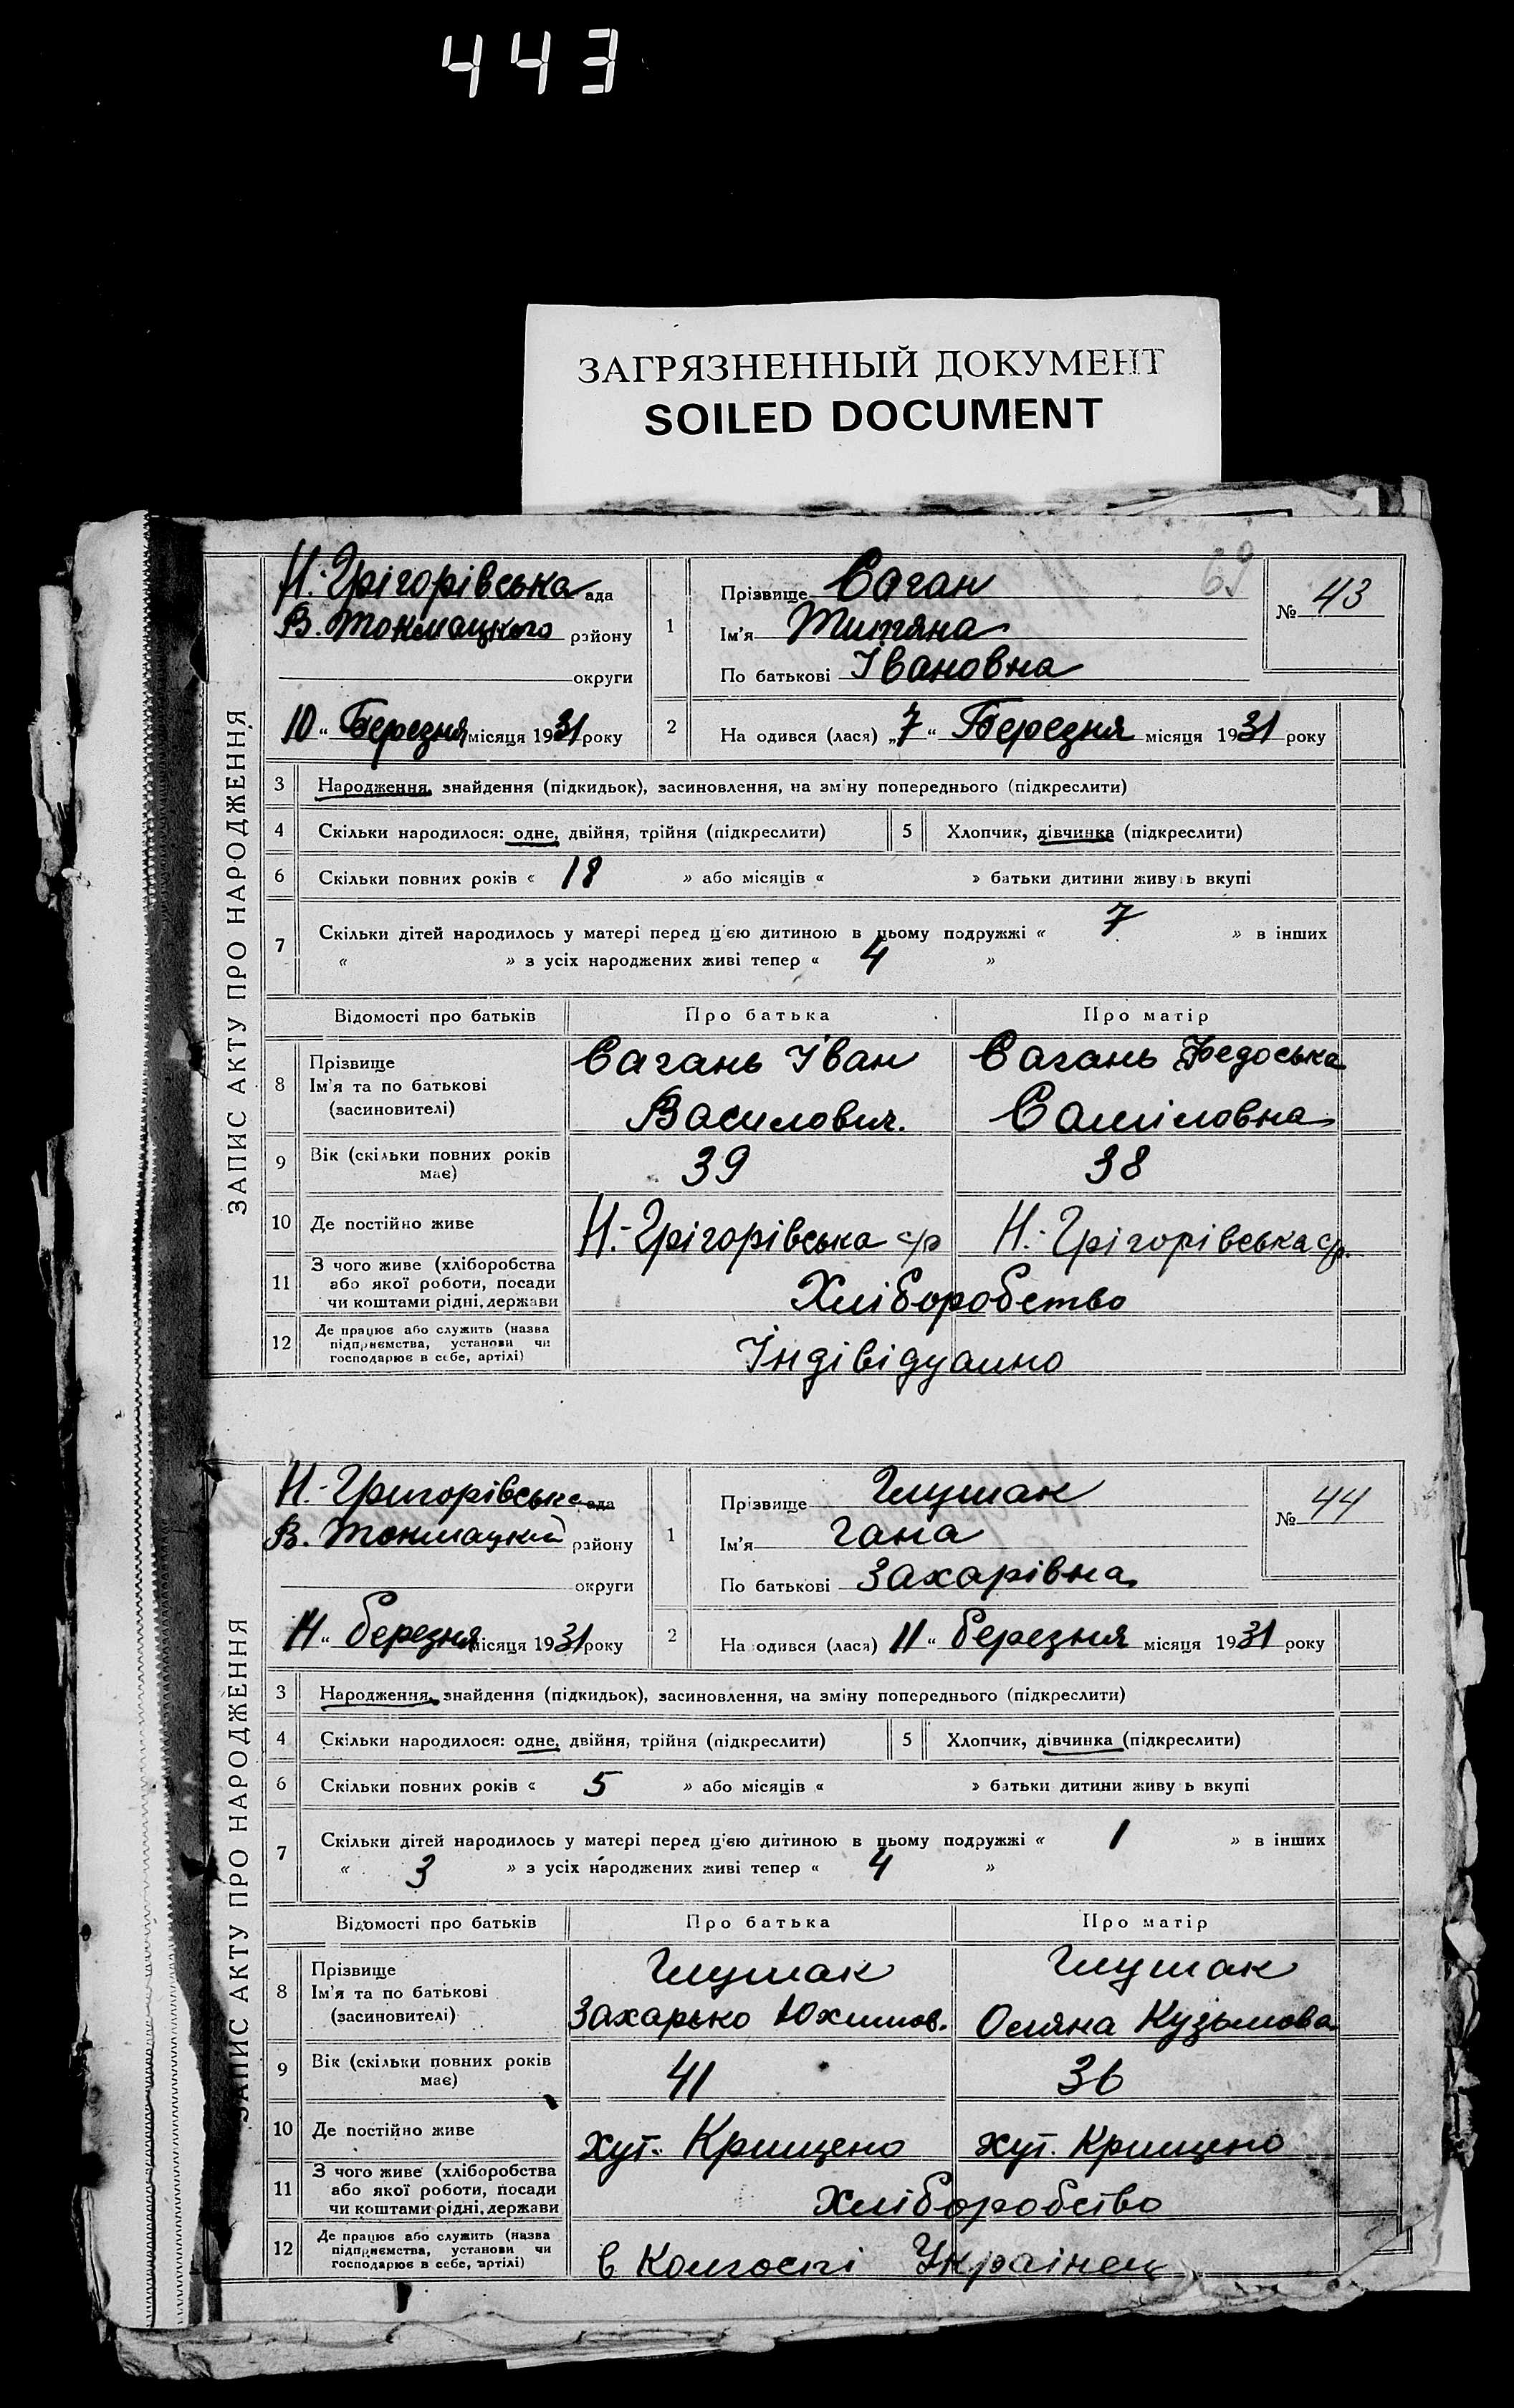 443
ЗАГРЯЗНЕННЫЙ ДОКУМЕНТ
SOILED DOCUMENT
69
ЗАПИС АКТУ ПРО НАРОДЖЕННЯ
Н.-Грігорівська ада
В. Токмацького району
округи
10 “ Березня місяця 1931 року
1
Прізвище Саган
Ім'я Титяна
По батькові Івановна
№ 43
2
На одився (лася) „7 “ Березня місяця 1931 року
3 Народження, знайдення (підкидьок), засиновлення, на зміну попереднього (підкреслити)
4 Скільки народилося: одне, двійня, трійня (підкреслити) 5 Хлопчик, дівчинка (підкреслити)
6 Скільки повних років « 18 » або місяців « » батьки дитини живуть вкупі
7 Скільки дітей народилось у матері перед ц'єю дитиною в цьому подружжі « 7 » в інших
« » з усіх народжених живі тепер « 4 »
Відомості про батьків Про батька Про матір
8 Прізвище
Ім'я та по батькові
(засиновителі)
Сагань Іван
Василович.
Сагань Федоська
Саміловна
9 Вік (скільки повних років
має)
39 38
10 Де постійно живе Н.-Грігорівська с/р Н.-Грігорівська с/р.
11 З чого живе (хліборобства
або якої роботи, посади
чи коштами рідні, держави
Хліборобство
12 Де працює або служить (назва
підприємства, установи чи
господарює в себе, артілі)
Індівідуално
ЗАПИС АКТУ ПРО НАРОДЖЕННЯ
Н.-Григорівська ада
В. Токмацкий району
округи
14 “ березня місяця 1931 року
1
Прізвище Глушак
Ім'я Гана
По батькові Захарівна
№ 44
2
На одився (лася) 11 “ березня місяця 1931 року
3 Народження, знайдення (підкидьок), засиновлення, на зміну попереднього (підкреслити)
4 Скільки народилося: одне, двійня, трійня (підкреслити) 5 Хлопчик, дівчинка (підкреслити)
6 Скільки повних років « 5 » або місяців « » батьки дитини живу ь вкупі
7 Скільки дітей народилось у матері перед ц'єю дитиною в цьому подружжі « 1 » в інших
« 3 » з усіх народжених живі тепер « 4 »
Відомості про батьків Про батька Про матір
8 Прізвище
Ім'я та по батькові
(засиновителі)
Глушак
Захарько Юхимов.
Глушак
Оляна Кузьмова
9 Вік (скільки повних років
має)
41 36
10 Де постійно живе хут. Крищено хут. Крищено
11 З чого живе (хліборобства
або якої роботи, посади
чи коштами рідні, держави
Хліборобство
12 Де працює або служить (назва
підприємства, установи чи
господарює в себе, артілі)
в Колгоспі Українец